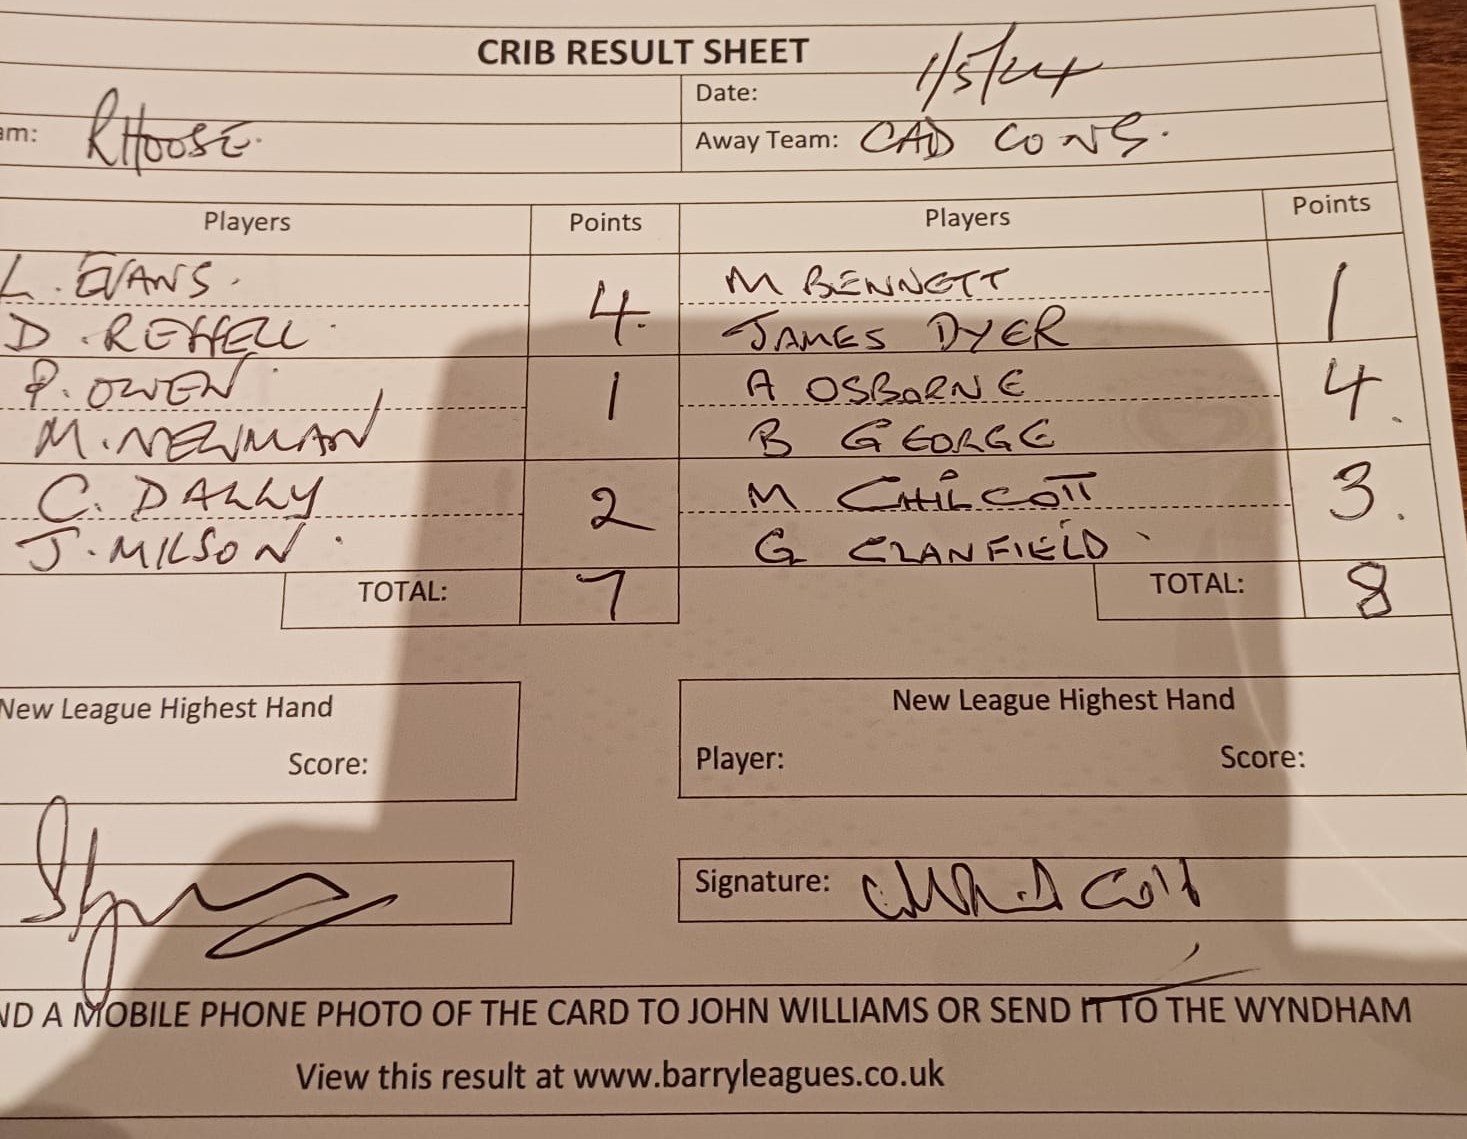 CRIB RESULT SHEET
Date: 1/5/24
am: RHOOSE. Away Team: CAD CONS.
Players Points Players Points
L. EVANS. 4. M BENNETT 1
D. REFFELL JAMES DYER
P. OWEN 1 A OSBORNE 4.
M. NEWMAN B GEORGE
C. DALLY 2 M CHILCOTT 3.
J. MILSON. G CLANFIELD
TOTAL: 7 TOTAL: 8
New League Highest Hand New League Highest Hand
Score: Player: Score:
Signature:
ND A MOBILE PHONE PHOTO OF THE CARD TO JOHN WILLIAMS OR SEND IT TO THE WYNDHAM
View this result at www.barryleagues.co.uk